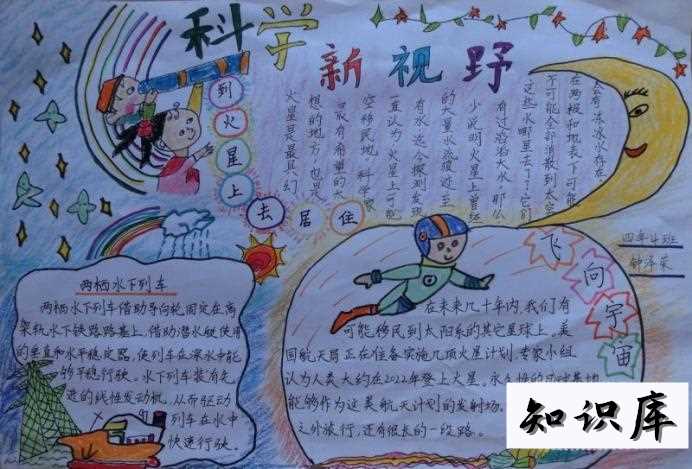 科学
新视野
到火星上去居住
火星是最具幻
想的地方,也是
最有希望的太
空移民地。科学家
直认为,火星上可能
有水,迄今探测发现
的大量水流痕迹,至
少说明火星上曾经
有过滔滔水,那么
这些水哪里去了?它们
不可能全部消散到太空
在两极和地表下可能
会有冻冰水存在
四年4班
钟泽荣
飞向宇宙
两栖水下列车
两栖水下列车借助导向轮固定在高
架轨水下铁路路基上,借助潜水艇使用
的垂直和水平稳定器,使列车在深水中能
够平稳行驶。水下列车装有先
进的线性发动机,从而驱动
列车在水中
快速行驶。
在未来几十年内,我们有
可能移民到太阳系的其它星球上。美
国航天局正在准备实施几项火星计划,专家小组
认为人类大约在2022年登上火星。永久性的月球基地
能够作为这美航天计划的发射场。
之外旅行,还有很长的一段路。
知识库